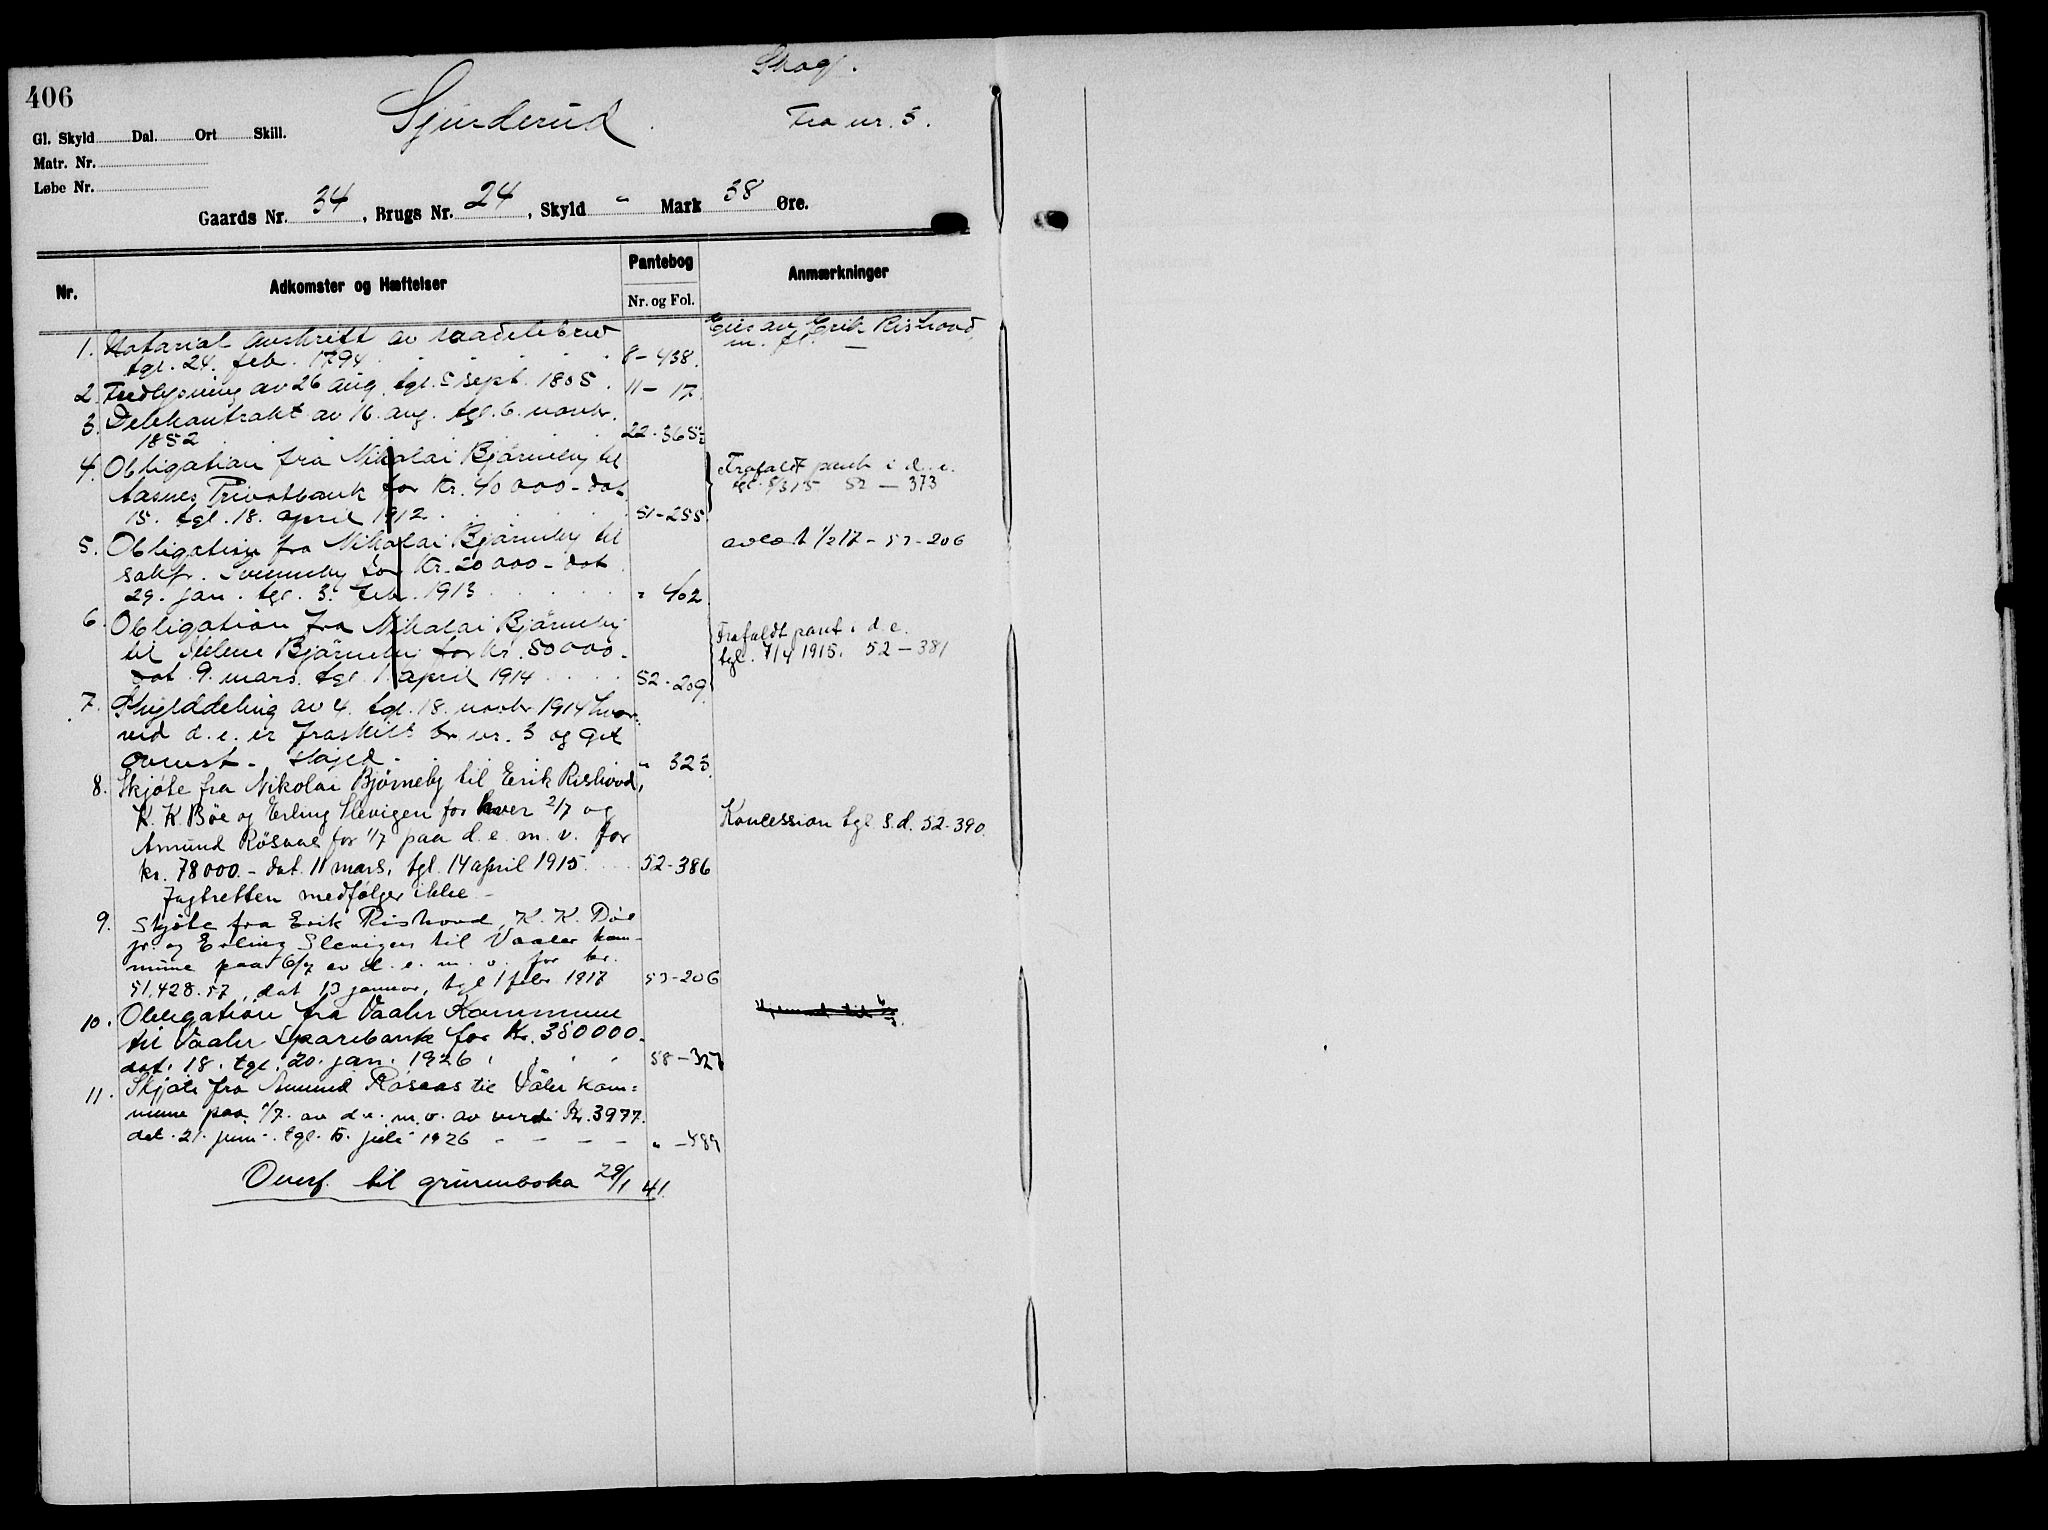 406
Skog.
Sjurderud.
Fra nr. 3.
Gl. Skyld Dal. Ort Skill.
Matr. Nr.
Løbe Nr.
Gaards Nr. 34, Brugs Nr. 24, Skyld - Mark 38 Øre.
Nr. Adkomster og Hæftelser Pantebog Nr. og Fol. Anmærkninger
Eies av Erik Rishovd
m. fl. —
1. Notarial avskrift av maadelebrev
tgl. 24. feb. 1794. 8-438.
2. Fredlysning av 26 aug. tgl. 5 sept. 1805. 11-17.
3. Delekontrakt av 16. aug. tgl. 6. novbr.
1852 22-365
4. Obligation fra Nikolai Bjørneby til
Aasnes Privatbank for Kr. 40 000 - dat.
15. tgl. 18. april 1912. 51-255
Frafaldt pant i d. e.
tgl. 8/3 15 52 — 373
5. Obligation fra Nikolai Bjørneby til
sakfr. Svenneby for Kr. 20 000 - dat.
29. jan. tgl. 3. feb. 1913 " 402
avlæst 1/2 17 - 53-206
6. Obligation fra Nikolai Bjørneby
til Helene Bjørneby for Kr. 50 000 -
dat. 9. mars tgl. 1. april 1914 52-209
Frafaldt pant i d. e.
tgl. 7/4 1915. 52 — 381
7. Skylddeling av 4. tgl. 18. novbr 1914 hvor-
ved d. e. er fraskilt br. nr. 3 og
" 323.
8. Skjøte fra Nikolai Bjørneby til Erik Rishovd,
K. K. Bøe og Erling Slevigen for hver 2/7 og
Amund Røsaas for 1/7 paa d. e. m. v. for
kr. 78 000. - dat. 11 mars, tgl. 14 april 1915. 52-386
Jagtretten medfølger ikke -
Koncession tgl. s. d. 52-390.
9. Skjøte fra Erik Rishovd, K. K. Bøe
jr. og Erling Slevigen til Vaaler kom-
mune paa 6/7 av d. e. m. v. for kr.
51.428.57, dat 13 januar, tgl 1 febr 1917 53-206
10. Obligation fra Vaaler Kommune
til Vaaler Sparebank for Kr. 350 000 -
dat. 18. tgl. 20. jan. 1926 58-327
11. Skjøte fra Amund Røsaas til Våler kom=
mune paa 1/7. av d. e. m. v. av verdi Kr. 3977.
dat. 21. juni - tgl. 5. juli 1926 - - - - " -489
Overf. til grunnboka 29/1 41.